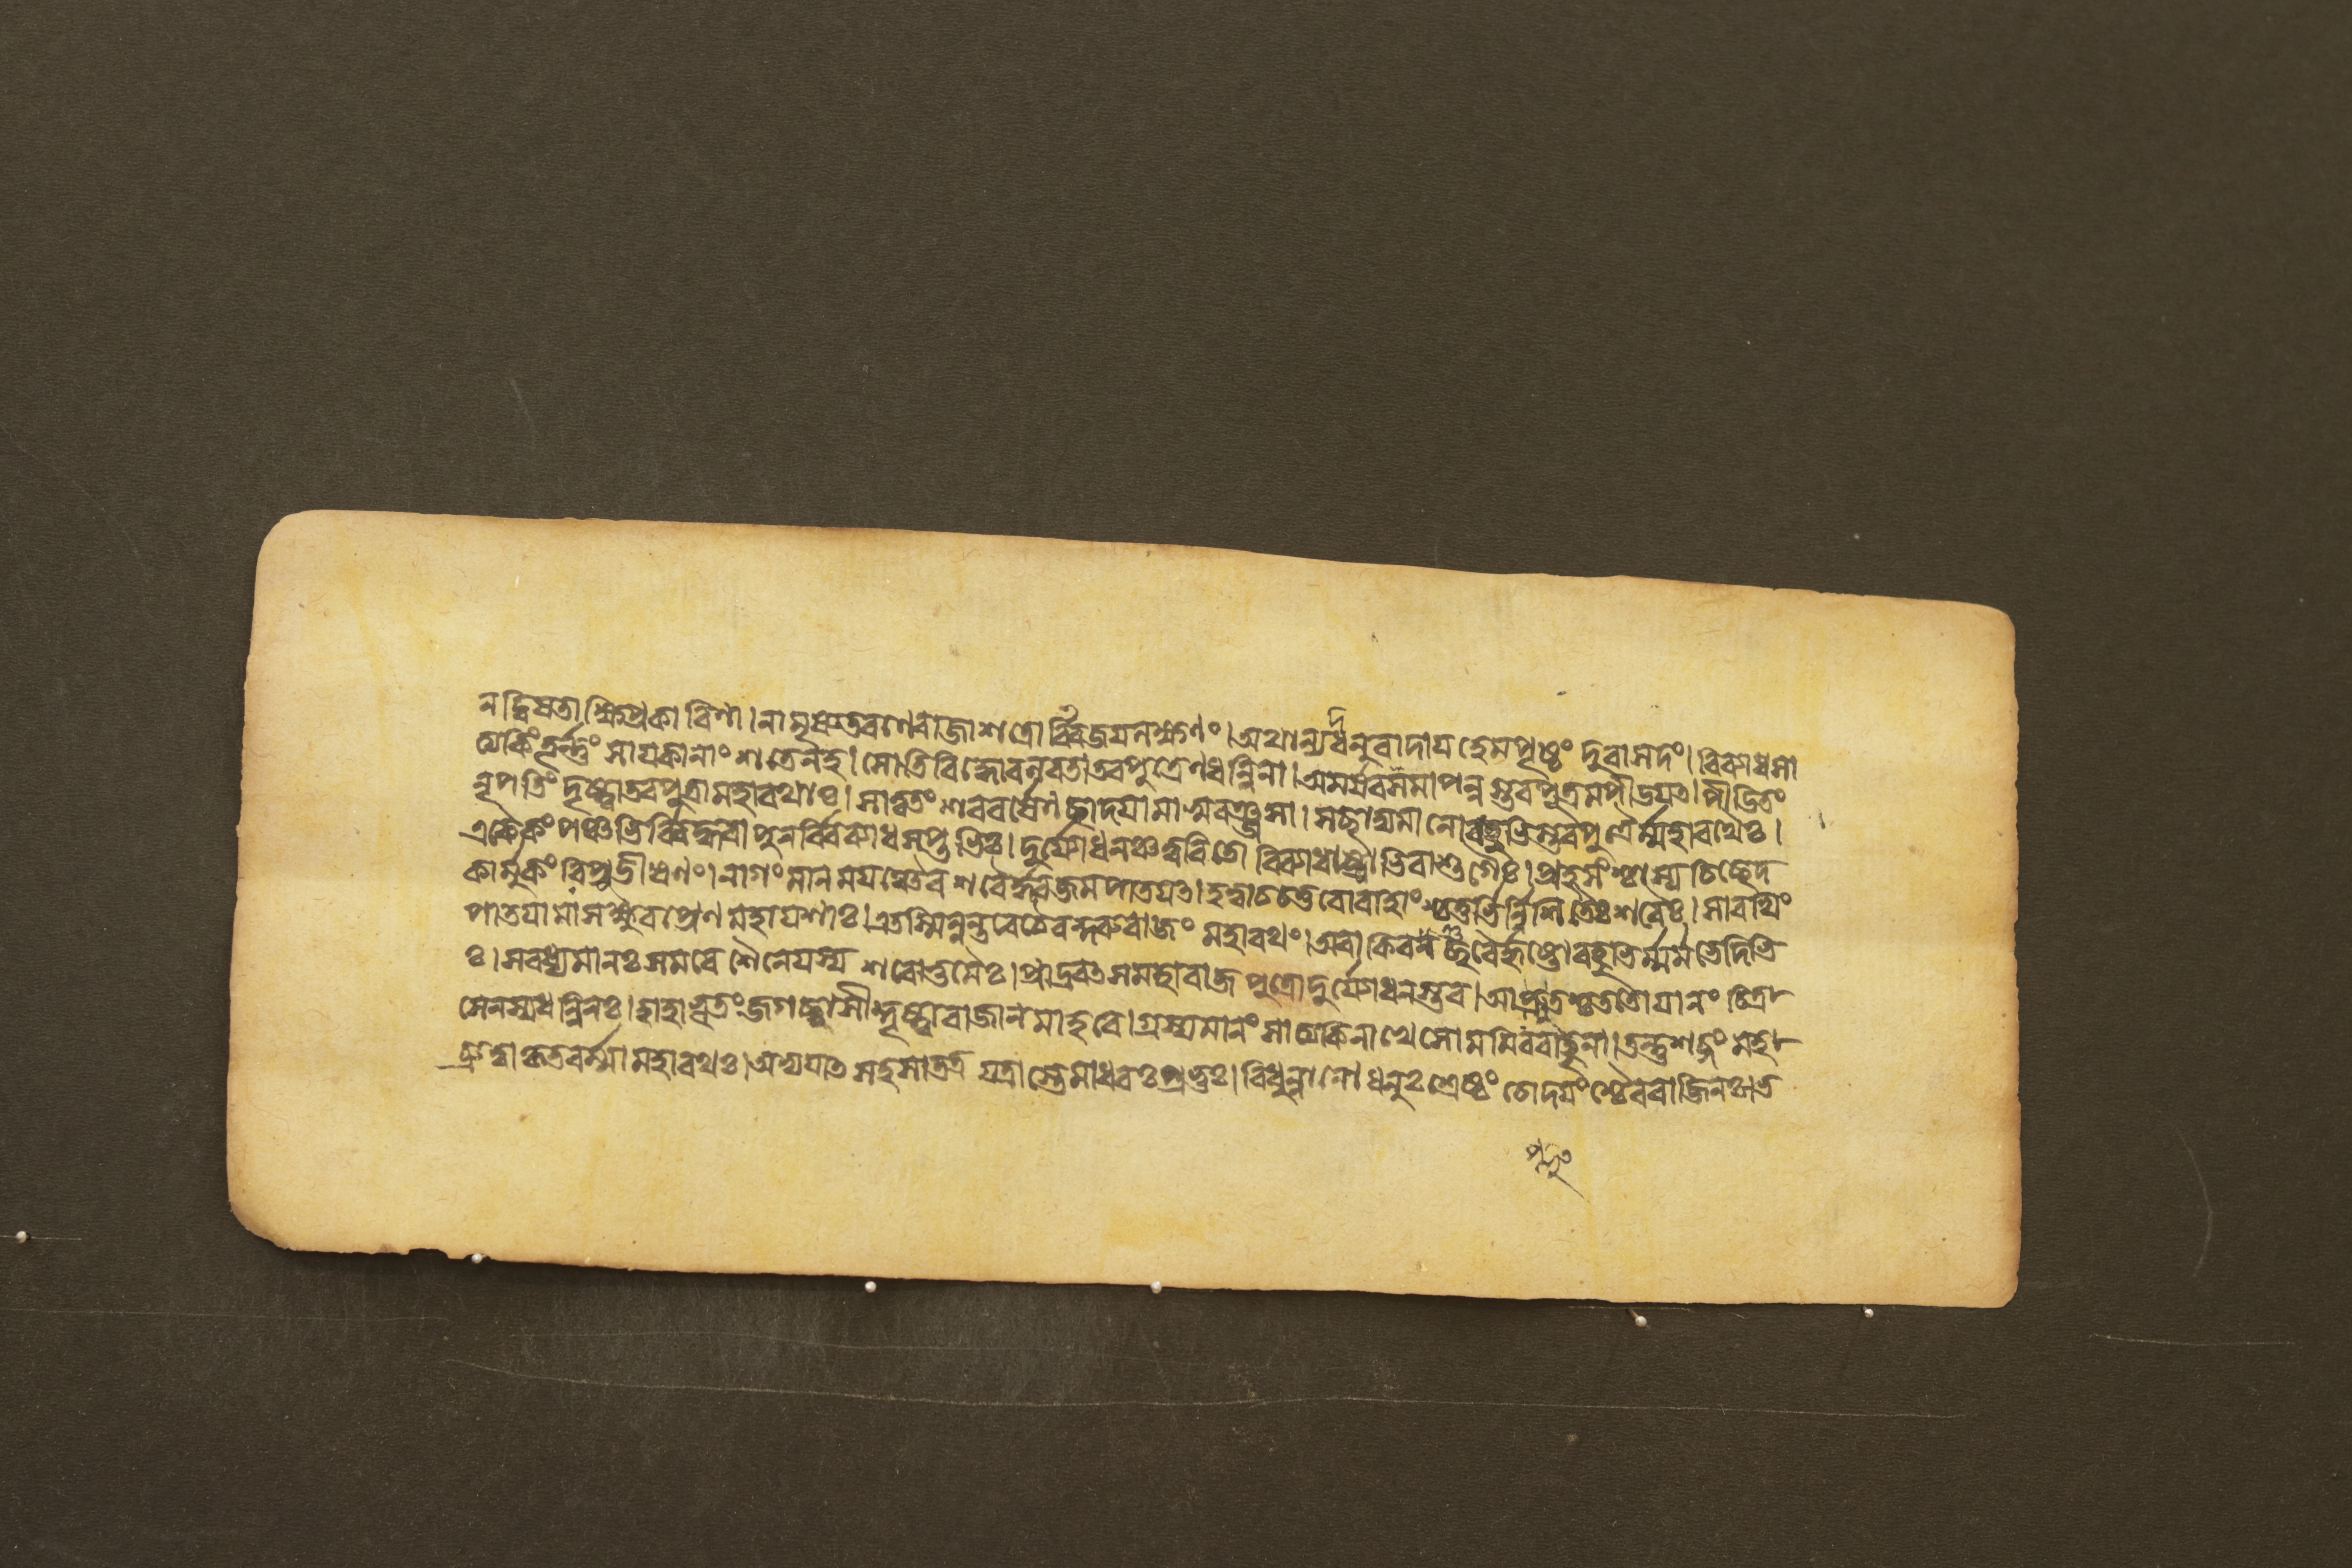 ন দ্বিষতা ক্ষিপ্রকারিণা। নামৃষ্যত রণে রাজা শত্রোর্বিজয়লক্ষণং। অথান্যদ্ধনুরাদায় হেমপৃষ্ঠং দুরাসদং। বিব্যাধ সা
ত্যকিং তূর্ণ্ণং সায়কানাং শতেন হ। সোতিবিদ্ধো বলবতা তব পুত্রেণ ধন্বিনা। অমর্ষবসমাপন্নস্তব পুত্রমপীড়য়ৎ। পীড়িতং
নৃপতিং দৃষ্ট্বা তব পুত্রা মহারথাঃ। সাত্বতং শরবর্ষেণ ছাদয়ামাসুরঞ্জসা। স ছাদ্যমানো বহুভিস্তব পুত্রৈর্ম্মহারথৈঃ।
একৈকং পঞ্চভির্বিদ্ধ্বা পুনর্বিব্যাধ সপ্তভিঃ। দুর্য্যোধনঞ্চ ত্বরিতো বিব্যাধাষ্টাভিরাশুগৈঃ। প্রহসংশ্চাস্য চিছেদ
কার্মুকং রিপুভীষণং। নাগং মানময়ঞ্চৈব শরৈর্দ্ধ্বজমপাতয়ৎ। হত্বা চ চতুরো বাহাংশ্চতুর্ভির্ন্নিশিতৈঃ শরৈঃ। সারথিং
পাতয়ামাস ক্ষুরপ্রেণ মহায়শাঃ। এতস্মিন্নন্তরে চৈব কুরুরাজং মহারথং। অবাকিরচ্ছরৈর্হৃষ্টো বহুভির্ম্মর্মভেদিভি
ঃ। স বধ্যমানঃ সমরে শৈনেয়স্য শরোত্তমৈঃ। প্রাদ্রবৎ স মহারাজ পুত্রো দুর্য্যোধনস্তব। আপ্লুতশ্চ ততো যানং চিত্র
সেনস্য ধন্বিনঃ। হাহাভূতং জগচ্চাসীদ্দৃষ্ট্বা রাজানমাহবে। গ্রস্যমানং সাত্যকিনা খে সোমমিব রাহুনা। তন্তু শব্দং মহ
চ্ছ্রুত্বা কৃতবর্ম্মা মহারথঃ। অভ্যয়াৎ সহসা তত্র যত্রাস্তে মাধবঃ প্রভুঃ। বিধুন্বানো ধনুঃশ্রেষ্ঠং চোদয়ংশ্চৈব বাজিনঃ। ভ